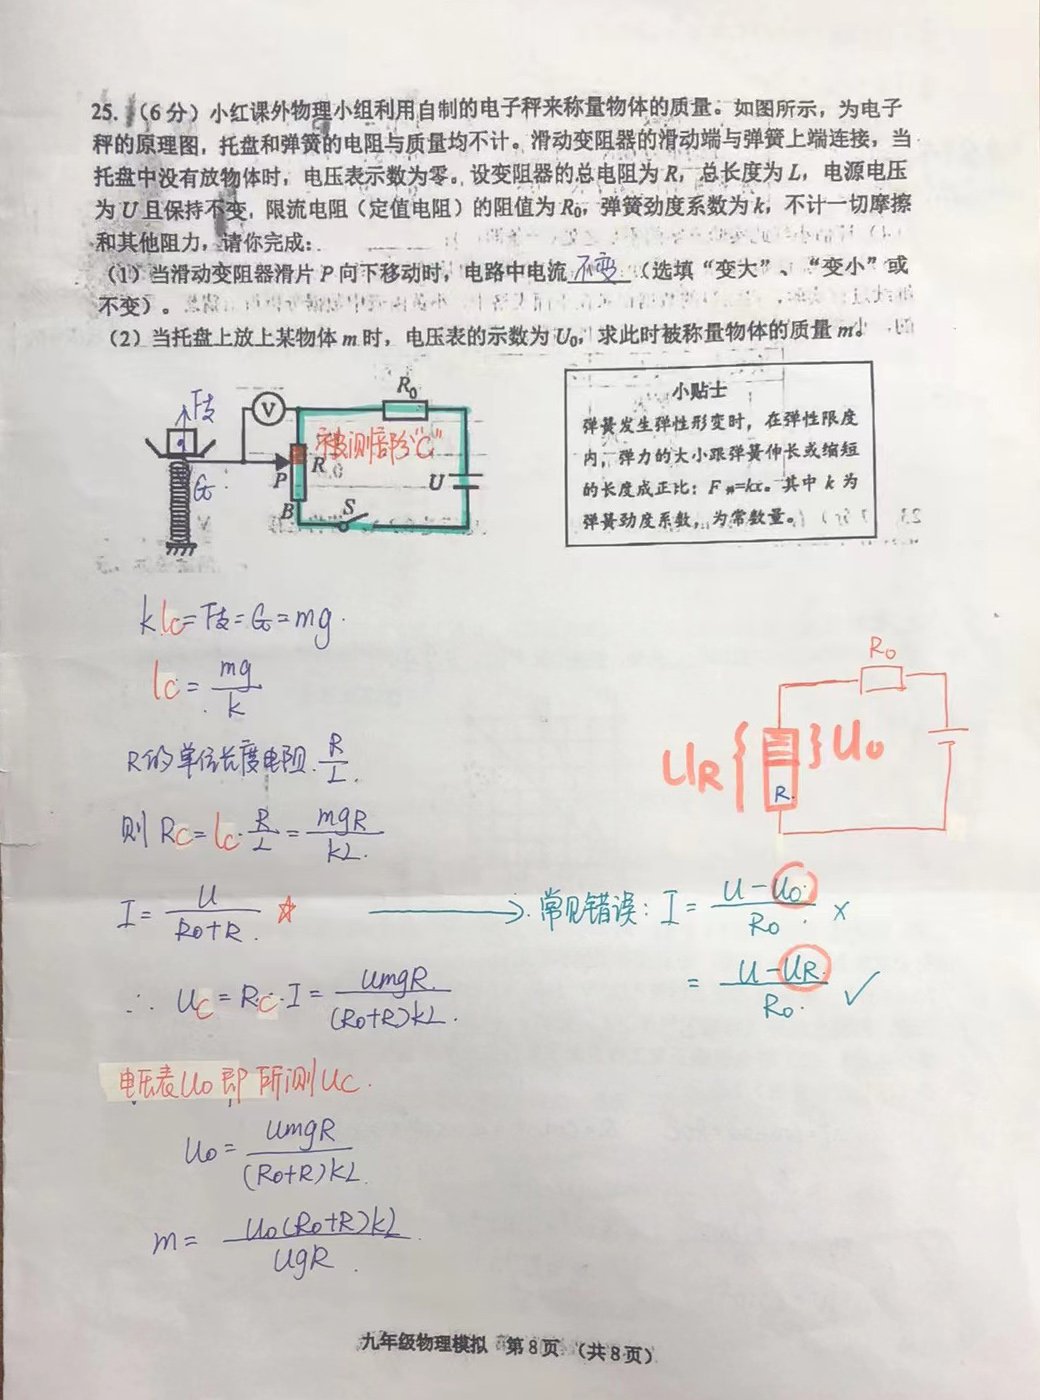 25. (6分) 小红课外物理小组利用自制的电子秤来称量物体的质量。如图所示，为电子
秤的原理图，托盘和弹簧的电阻与质量均不计。滑动变阻器的滑动端与弹簧上端连接，当
托盘中没有放物体时，电压表示数为零。设变阻器的总电阻为R，总长度为L，电源电压
为U且保持不变，限流电阻（定值电阻）的阻值为R₀，弹簧劲度系数为k，不计一切摩擦
和其他阻力，请你完成：
(1) 当滑动变阻器滑片P向下移动时，电路中电流 不变 （选填“变大”、“变小”或
不变）。
(2) 当托盘上放上某物体m时，电压表的示数为U₀，求此时被称量物体的质量m。
F支
V
R₀
被测部分“C”
R
P
G
U
B
S
小贴士
弹簧发生弹性形变时，在弹性限度
内，弹力的大小跟弹簧伸长或缩短
的长度成正比：F弹=kx。其中k为
弹簧劲度系数，为常数量。
klc=F支=G=mg.
lc=mg/k
R的单位长度电阻 R/L.
则Rc=lc·R/L=mgR/kL.
I=U/(R₀+R). ☆
→ 常见错误: I=(U-U₀)/R₀ ×
=(U-UR)/R₀. ✓
∴ Uc=Rc·I=UmgR/(R₀+R)kL.
电压表U₀即所测Uc.
U₀=UmgR/(R₀+R)kL.
m=U₀(R₀+R)kL/UgR.
R₀
UR
U₀
R.
九年级物理模拟 第8页 (共8页)